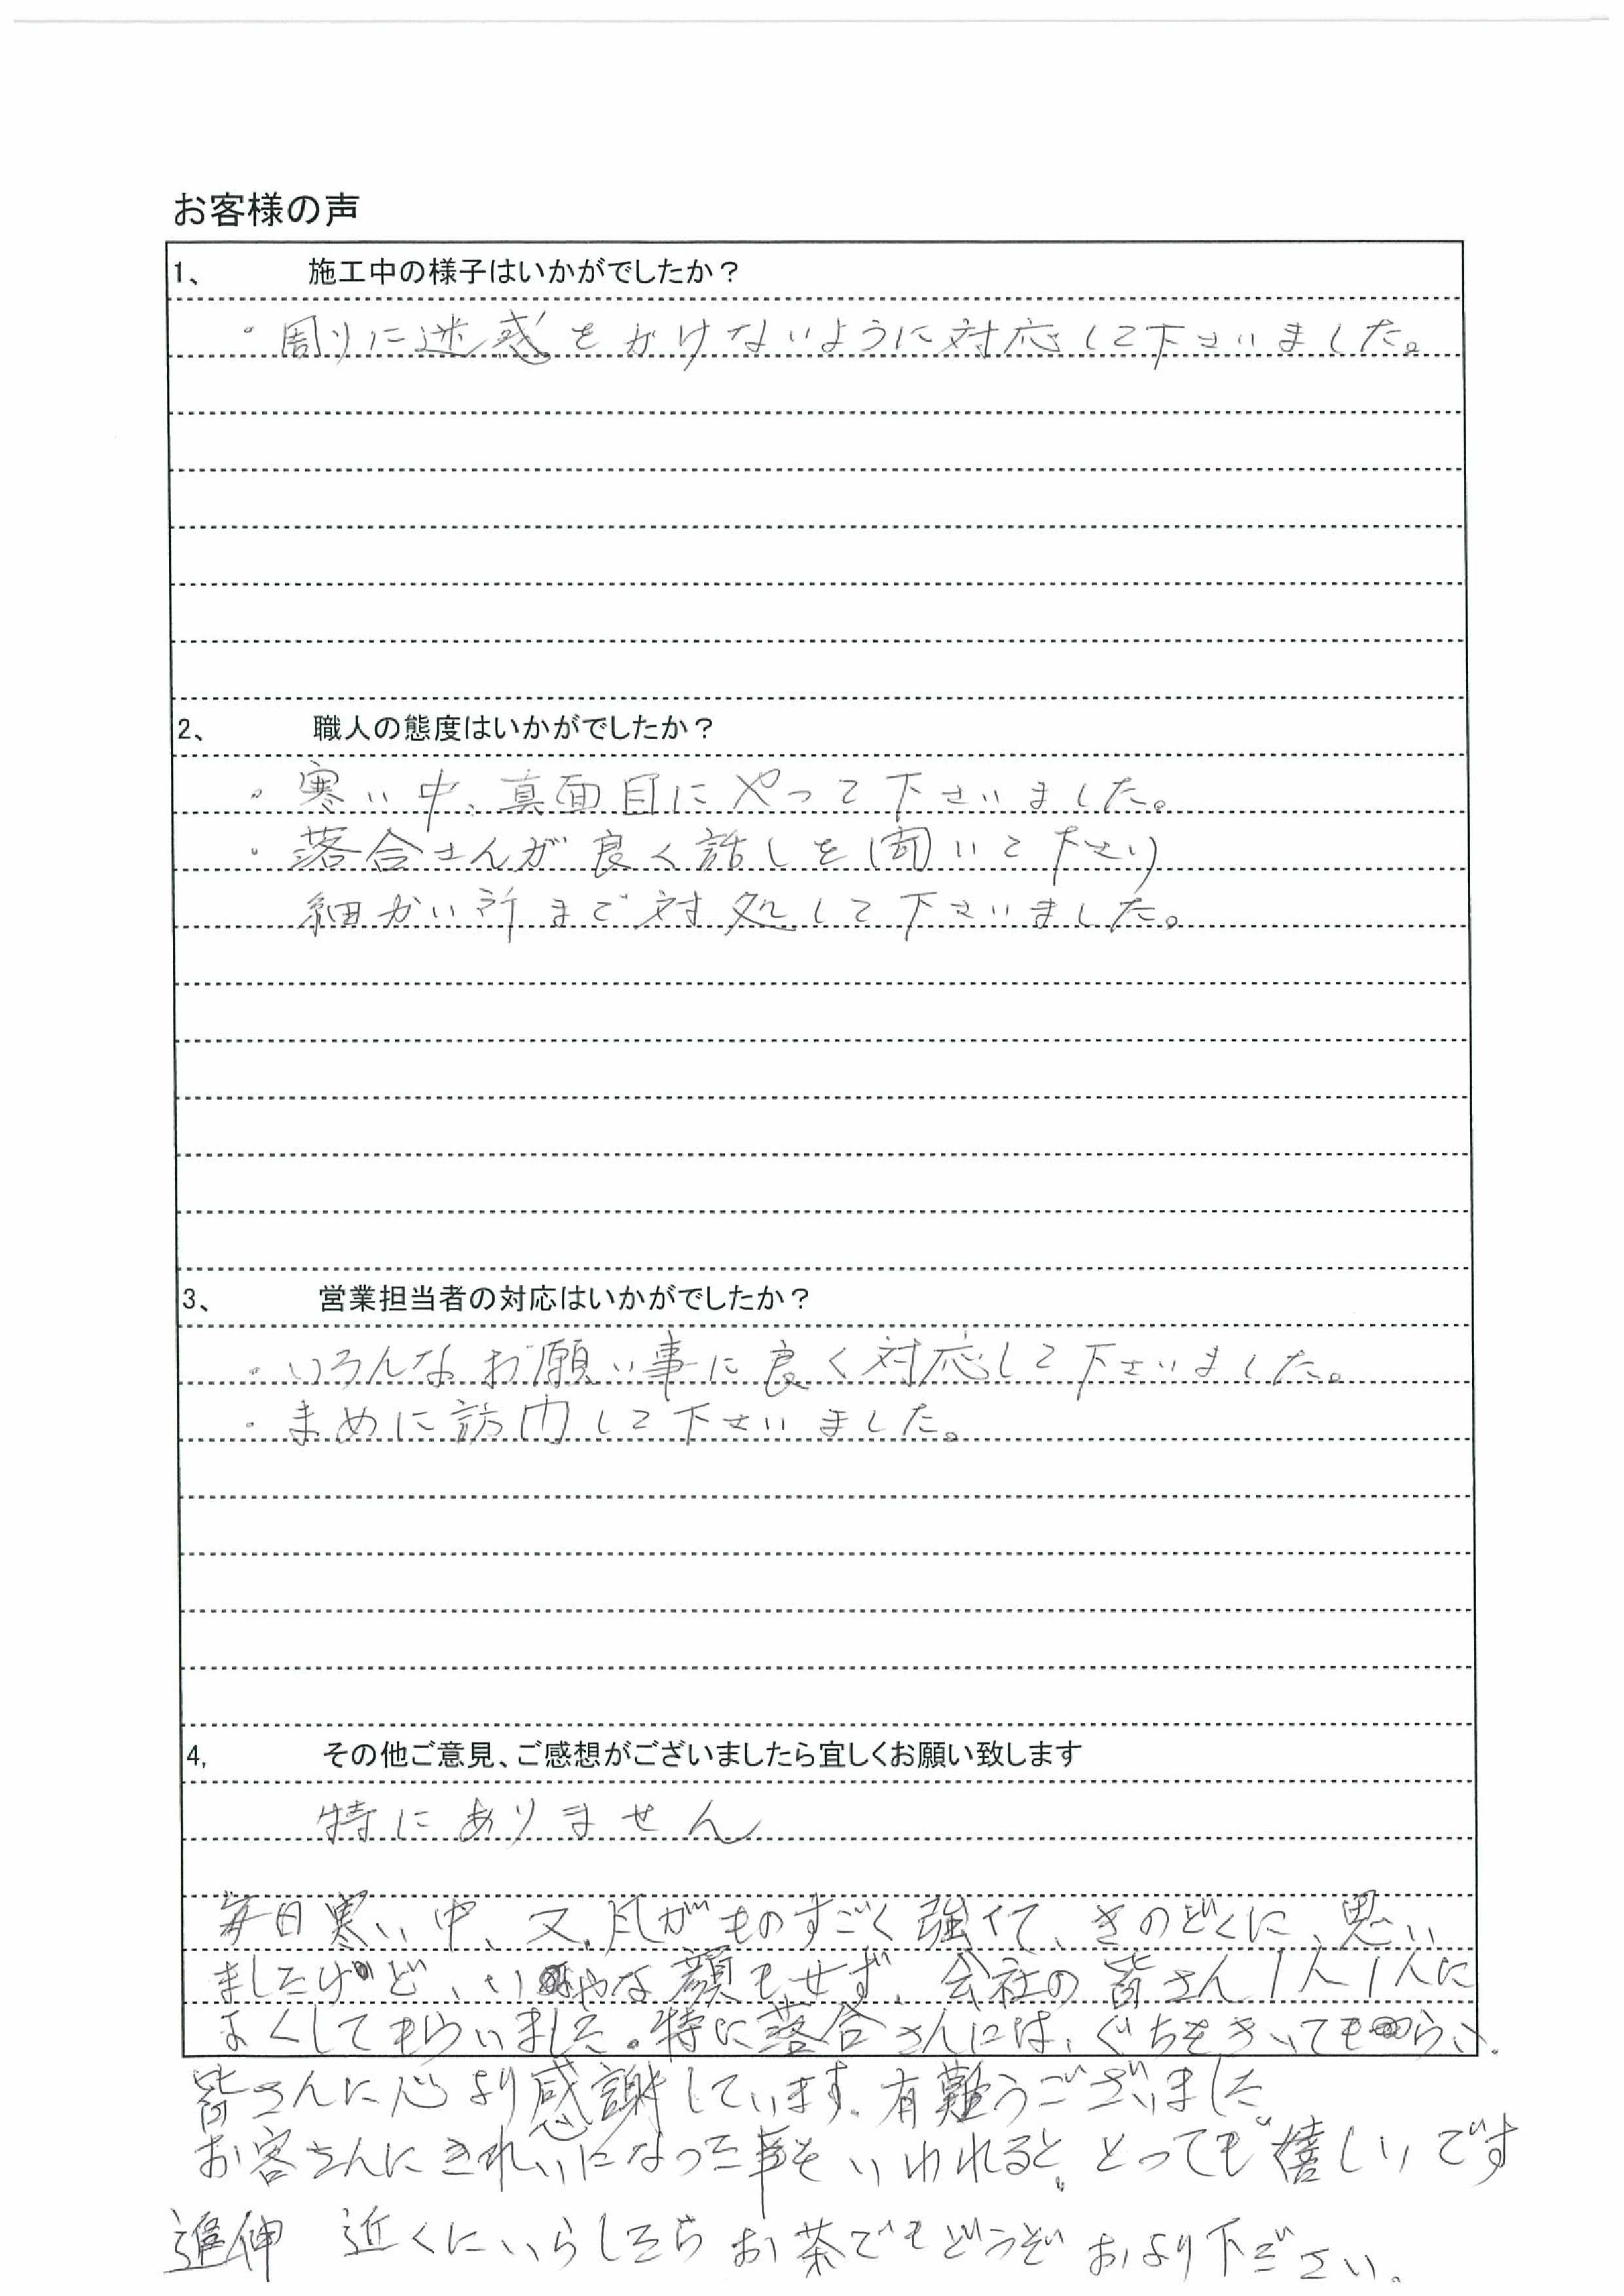 お客様の声
1、 施工中の様子はいかがでしたか？
・周りに迷惑をかけないように対応して下さいました。
2、 職人の態度はいかがでしたか？
・寒い中、真面目にやって下さいました。
・落合さんが良く話しを聞いて下さり
細かい所まで対処して下さいました。
3、 営業担当者の対応はいかがでしたか？
・いろんなお願い事に良く対応して下さいました。
・まめに訪問して下さいました。
4, その他ご意見、ご感想がございましたら宜しくお願い致します
特にありません
毎日寒い中、又、風がものすごく強くて、きのどくに、思い
ましたけど、いやな顔もせず、会社の皆さん1人1人に
よくしてもらいました。特に落合さんには、ぐちをきいてもらい、
皆さんに心より感謝しています。有難うございました
お客さんにきれいになった事をいわれると、とっても嬉しいです
追伸 近くにいらしたら お茶でもどうぞ およリ下ださい。